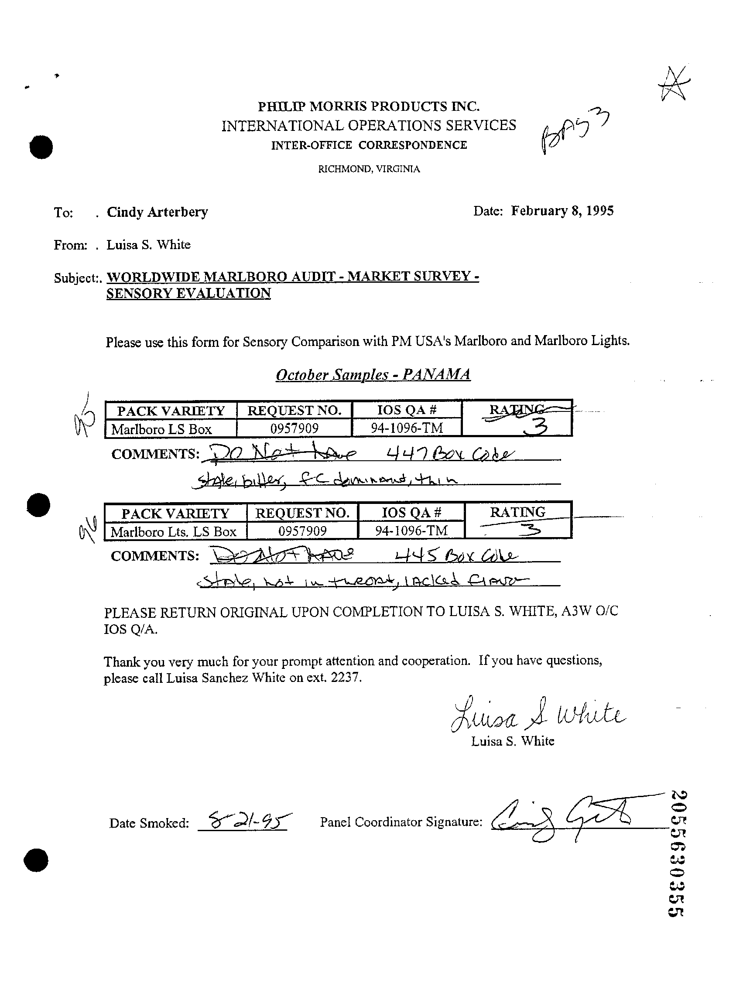 PHILIP MORRIS PRODUCTS INC.
INTERNATIONAL OPERATIONS SERVICES
INTER-OFFICE CORRESPONDENCE
RICHMOND, VIRGINIA
To: . Cindy Arterbery Date: February 8, 1995
From: . Luisa S. White
Subject:. WORLDWIDE MARLBORO AUDIT - MARKET SURVEY -
SENSORY EVALUATION
Please use this form for Sensory Comparison with PM USA's Marlboro and Marlboro Lights.
October Samples - PANAMA
PACK VARIETY REQUEST NO. IOS QA # RATING
Marlboro LS Box 0957909 94-1096-TM 3
COMMENTS: DO Not have 447 Box Code
stale, bitter, f-c dominant, thin
PACK VARIETY REQUEST NO. IOS QA # RATING
Marlboro Lts. LS Box 0957909 94-1096-TM 3
COMMENTS: Do Not have 445 Box Code
Stale, hot in throat, lacked flavor
PLEASE RETURN ORIGINAL UPON COMPLETION TO LUISA S. WHITE, A3W O/C
IOS Q/A.
Thank you very much for your prompt attention and cooperation. If you have questions,
please call Luisa Sanchez White on ext. 2237.
Luisa S White
Luisa S. White
Date Smoked: 8-21-95 Panel Coordinator Signature:
2055630355